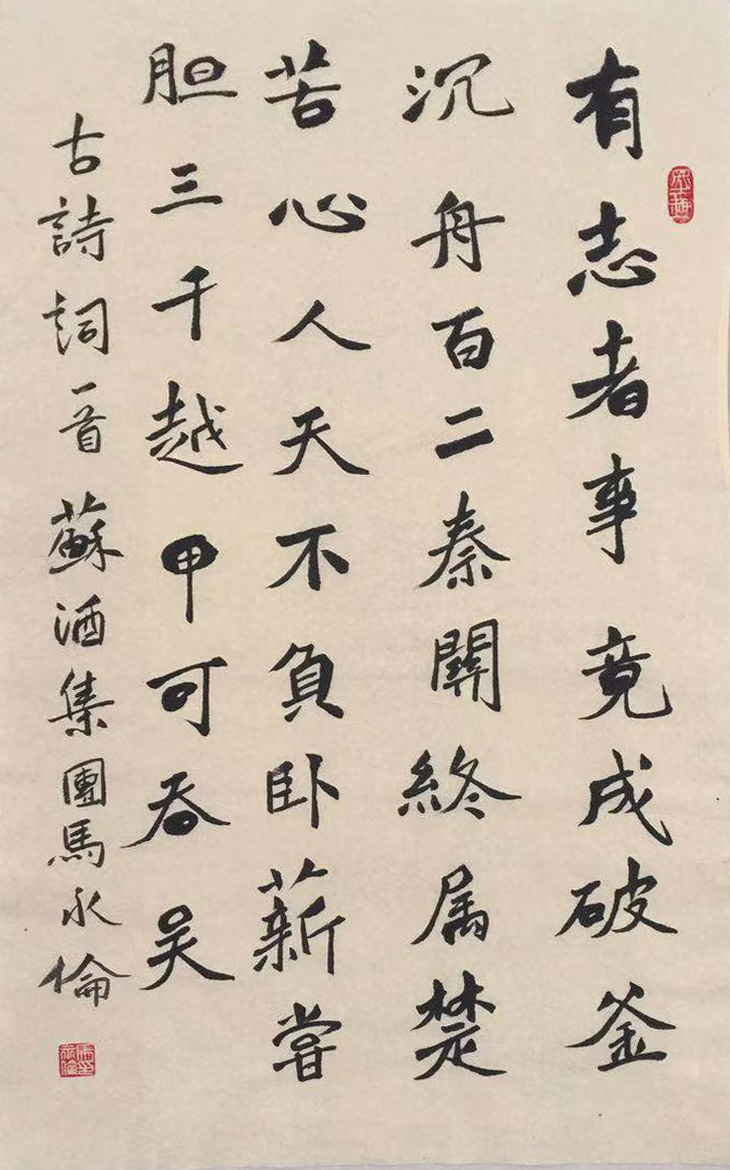 有志者事竟成破釜
沉舟百二秦關終属楚
苦心人天不負卧薪嘗
胆三千越甲可吞吴
古詩詞一首蘇酒集團馬永倫